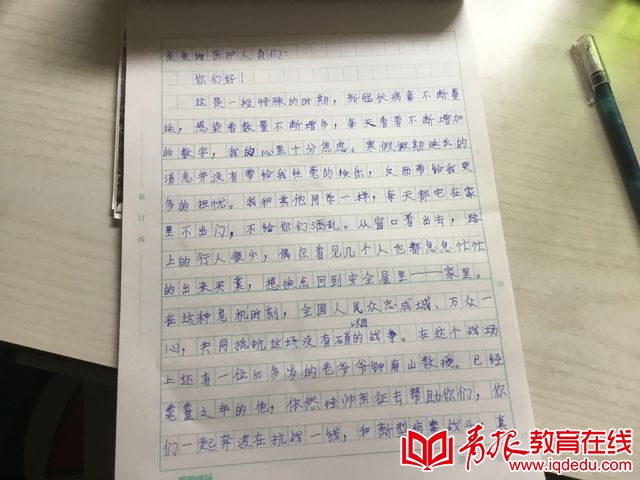 亲爱的医护人员们：
你们好！
这是一段特殊的时期，新冠状病毒不断蔓
延，感染者数量不断增多，每天看着不断增加
的数字，我的心里十分焦虑。寒假假期延长的
消息并没有带给我丝毫的快乐，反而带给我更
多的担忧。我和其他同学一样，每天都宅在家
里不出门，不给你们添乱。从窗口看出去，路
上的行人很少，偶尔看见几个人也都急急忙忙
的出来买菜，想快点回到安全屋里——家里。
在这种危机时刻，全国人民众志成城、万众一
心，共同抵抗这场没有硝烟的战争。在这个战场
上还有一位80多岁的老爷爷钟南山教授。已经
耄耋之年的他，依然挂帅亲征去帮助你们，你
们一起奔波在抗战一线，和新型病毒战斗，真
装订线
10
青报教育在线
www.iqdedu.com